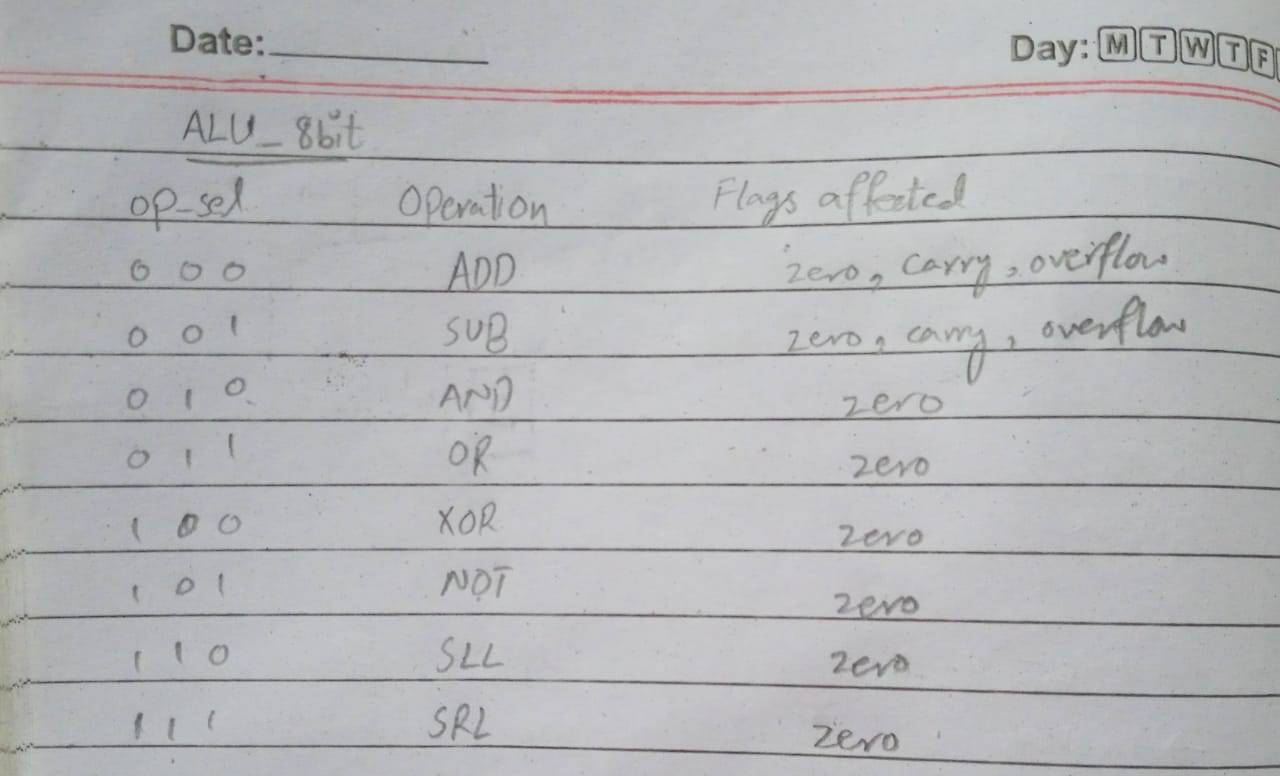 Date:
Day: M T W T F
ALU_8bit
op_sel Operation Flags affected
0 0 0 ADD zero, carry, overflow
0 0 1 SUB zero, carry, overflow
0 1 0 AND zero
0 1 1 OR zero
1 0 0 XOR zero
1 0 1 NOT zero
1 1 0 SLL zero
1 1 1 SRL zero